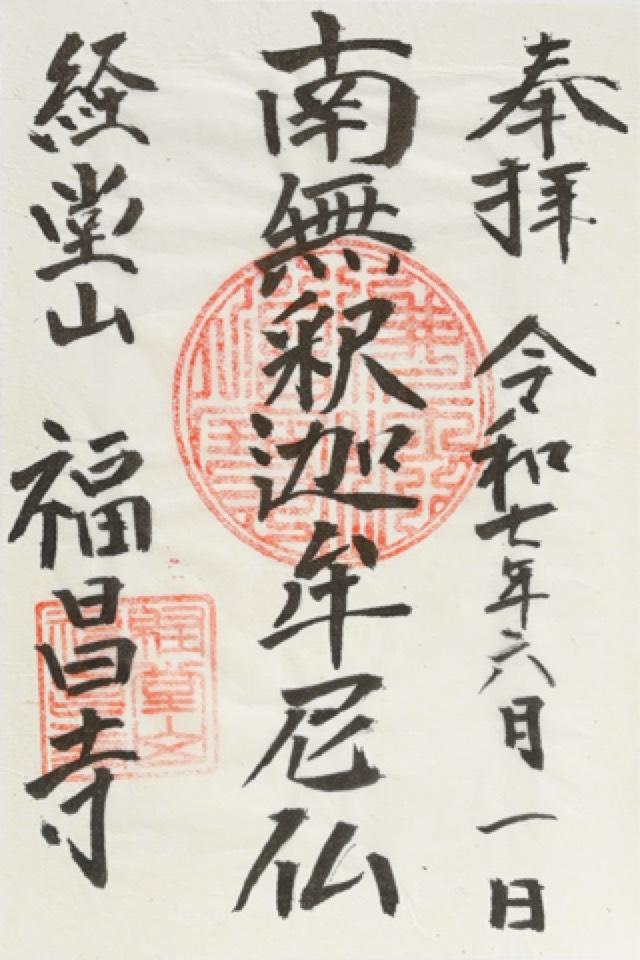 奉拝 令和七年六月一日
南無釈迦牟尼仏
経堂山 福昌寺